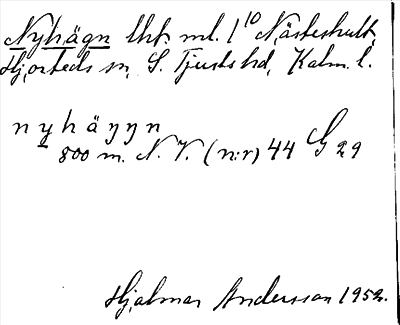 Nyhägn lht. ml. 1¹⁰ Näsleshult,
Hjorteds sn, S. Tjusts hd, Kalm. l.
nyhäŋŋn
800 m. N. V. (n:r) 44 G 29
Hjalmar Andersson 1952.